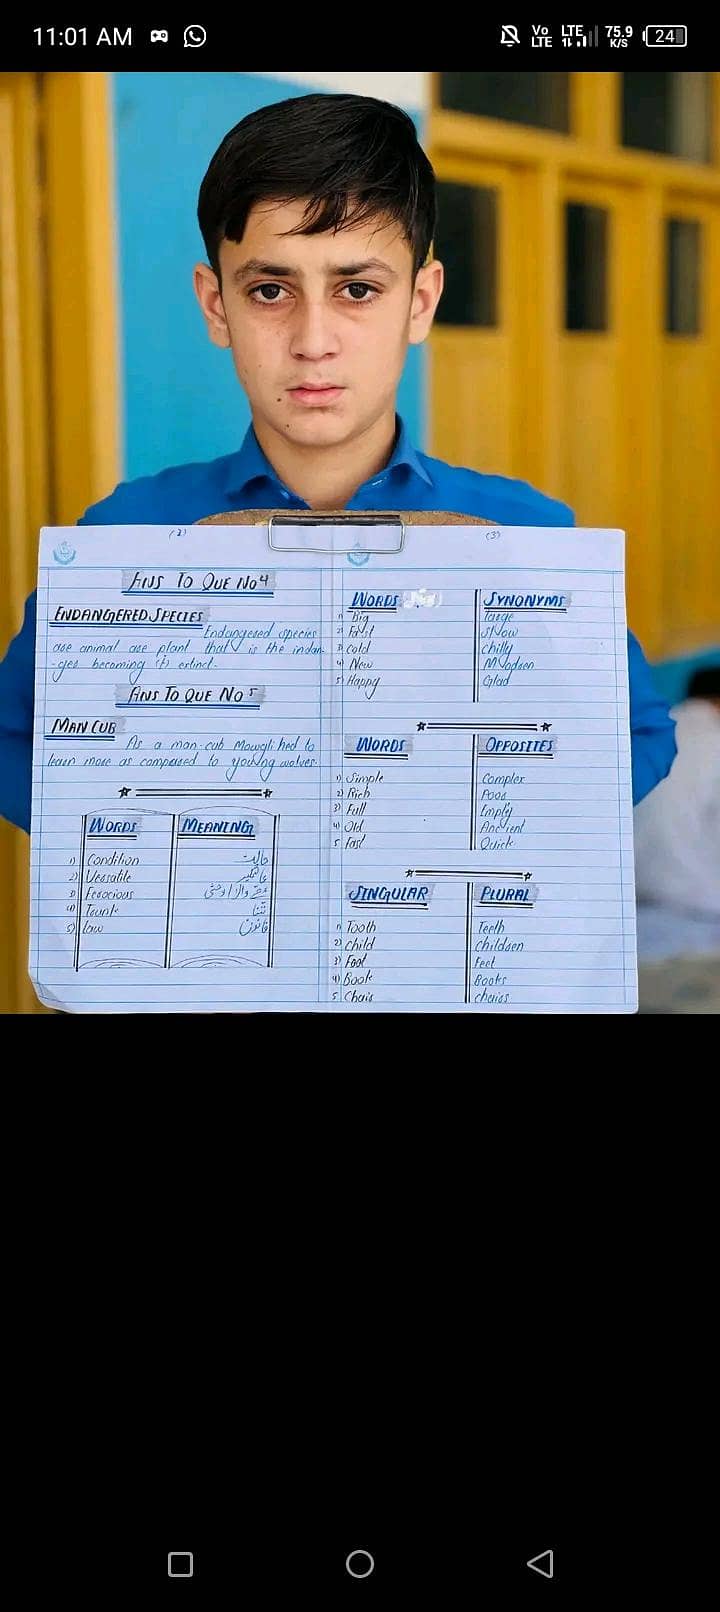 11:01 AM
Vo LTE LTE 75.9 K/S 24
(2)
Ans To Que No 4
ENDANGERED SPECIES
Endangered species
are animal are plant that is the indan-
-ger becoming extinct.
Ans To Que No 5
MAN CUB
As a man-cub Mowgli hed to
learn more as compared to young wolves.
WORDS MEANING
1) Condition حالت
2) Versatile
3) Ferocious
4) Trunk تنا
5) Law قانون
(3)
WORDS SYNONYMS
1) Big large
2) Fast
3) Cold chilly
4) New Modren
5) Happy Glad
WORDS OPPOSITES
1) Simple Complex
2) Rich Poor
3) Full Empty
4) Old Ancient
5 Fast Quick
SINGULAR PLURAL
1) Tooth Teeth
2) child children
3) Foot Feet
4) Book Books
5 Chair chairs